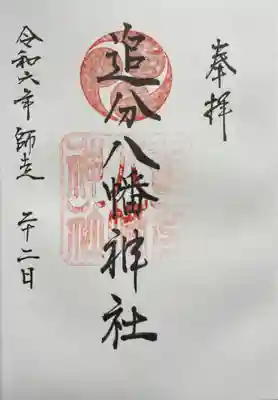 奉拝
追分八幡神社
令和六年師走二十二日